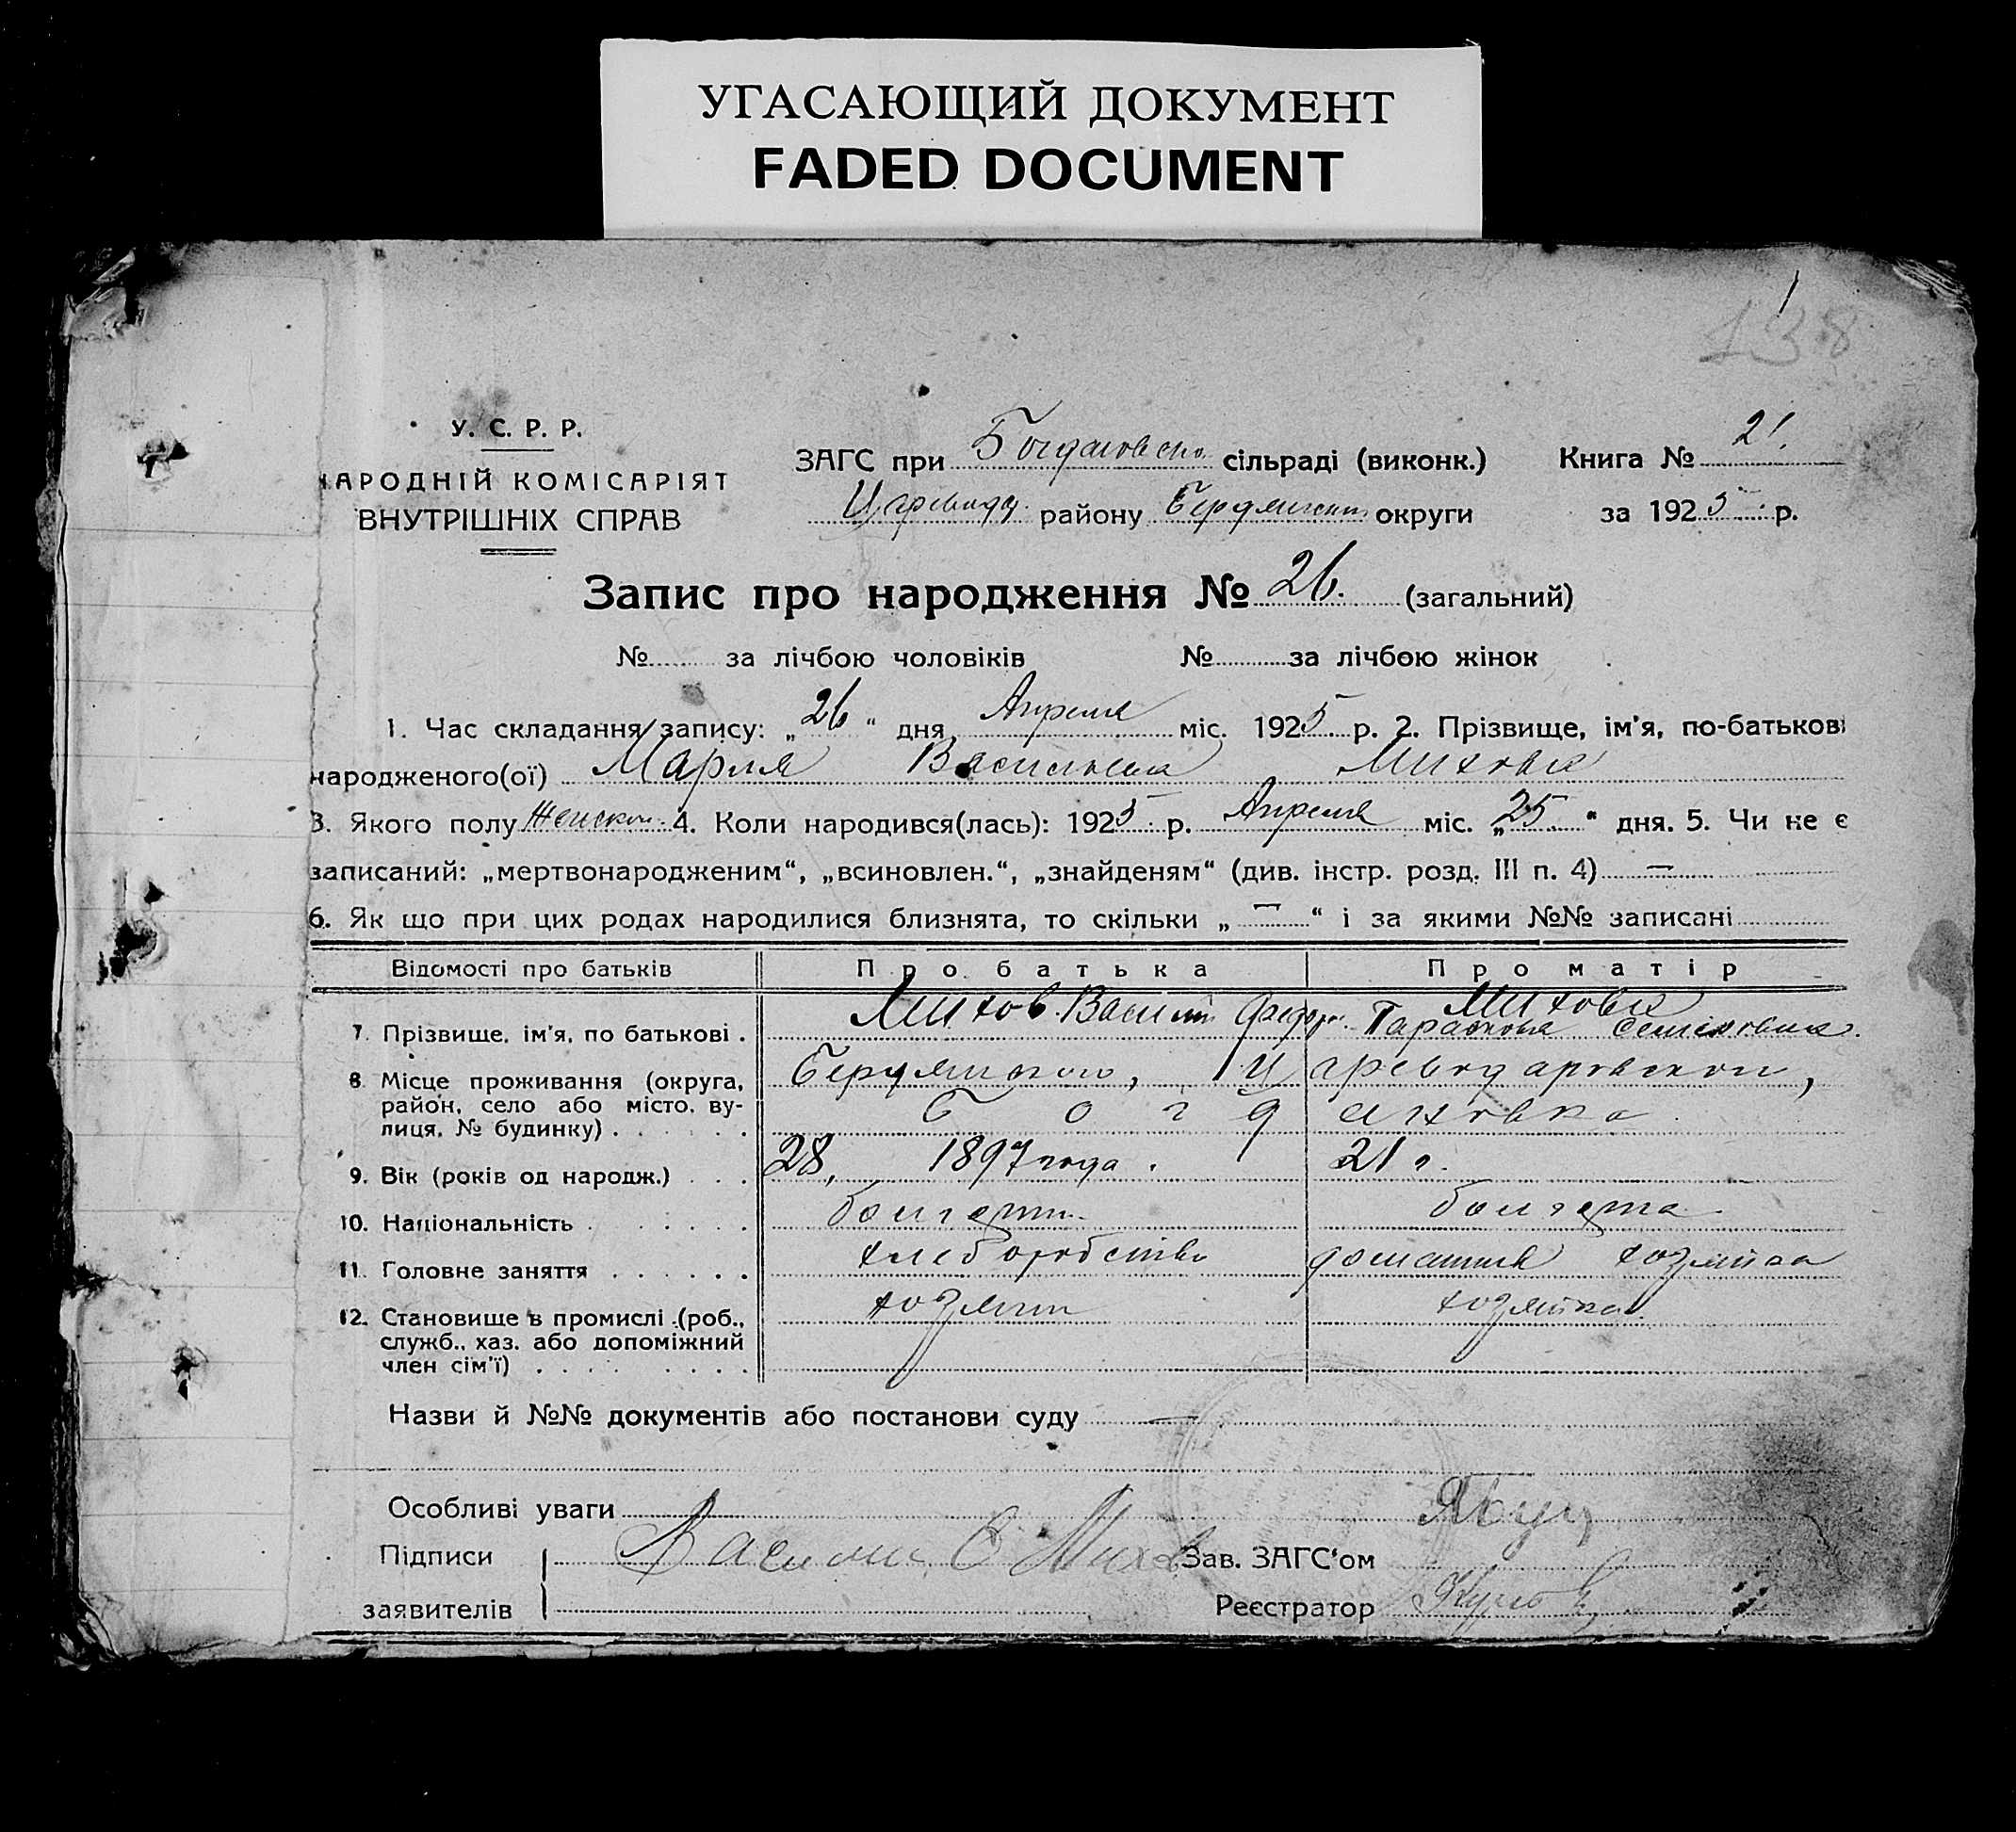 УГАСАЮЩИЙ ДОКУМЕНТ
FADED DOCUMENT
138
У. С. Р. Р.
НАРОДНІЙ КОМІСАРІЯТ
ВНУТРІШНІХ СПРАВ
ЗАГС при Богдановско сільраді (виконк.) Книга № 21.
Царевода. району Бердянском округи за 1925 р.
Запис про народження № 26. (загальний)
№ за лічбою чоловіків № за лічбою жінок
1. Час складання запису: „26“ дня Апреля міс. 1925 р. 2. Прізвище, ім'я, по-батькові
народженого(ої) Мария Васильева Михова
3. Якого полу Женском 4. Коли народився(лась): 1925 р. Апреля міс. „25.“ дня. 5. Чи не є
записаний: „мертвонародженим“, „всиновлен.“, „знайденям“ (див. інстр. розд. III п. 4) —
6. Як що при цих родах народилися близнята, то скільки „—“ і за якими №№ записані
Відомості про батьків Про батька Про матір
7. Прізвище, ім'я, по батькові . Михов Василий Федор. Михова Парасковья Семеновна.
8. Місце проживання (округа, район, село або місто, вулиця, № будинку) . Бердянском, Цареводаровском,
Богдановка
9. Вік (років од народж.) . . . 28, 1897 года. 21 г.
10. Національність . болгарин болгарка
11. Головне заняття . хлеборобство домашняя хозяйка
12. Становище в промислі (роб., служб., хаз. або допоміжний член сім'ї) . хозяин хозяйка
Назви й №№ документів або постанови суду —
Особливі уваги
Підписи Василий Ф Михов Зав. ЗАГС'ом
заявителів Реєстратор